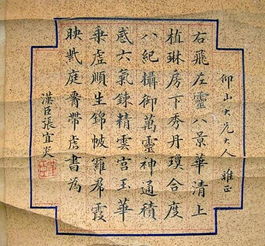 仰山大兄大人 雅正
右飛左靈八景華清上
植琳房下秀丹瑛合度
八紀攝御萬靈神通積
感六氣鍊精雲宮玉華
乘虛順生錦帔羅裙霞
映紫庭腰帶虎書為
湛臣張宜